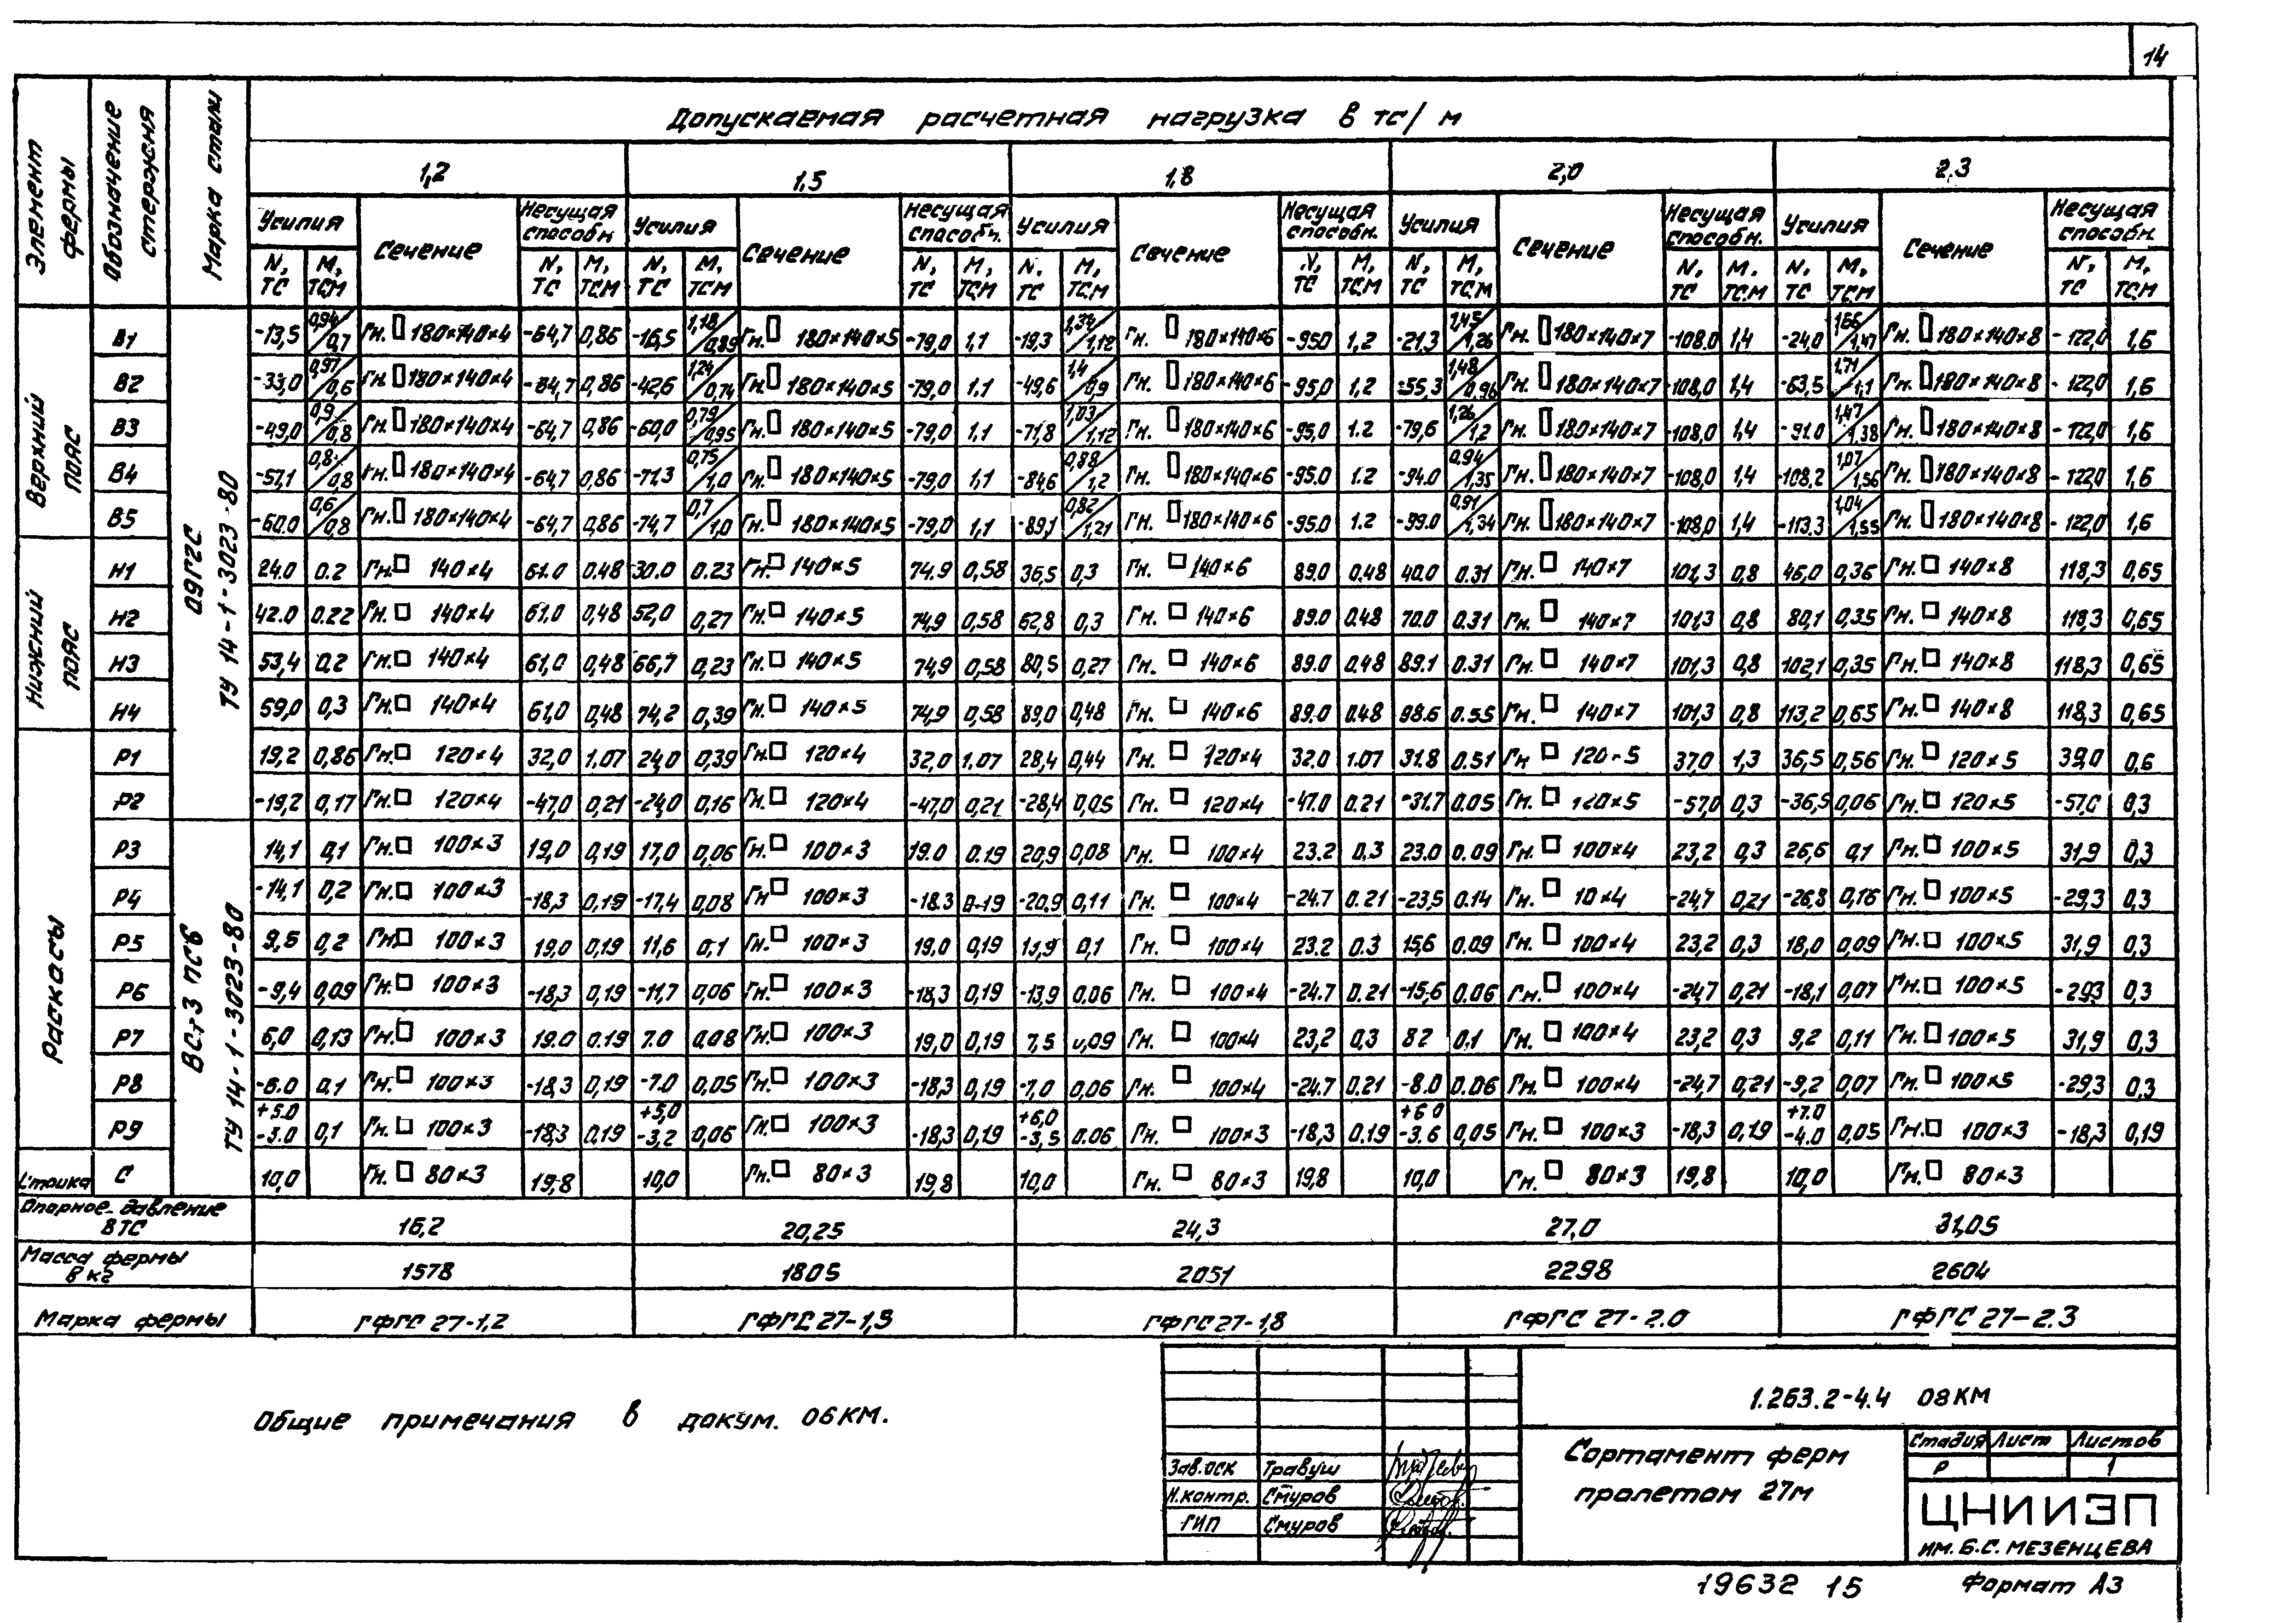 14
Элемент фермы
Обозначение стержня
Марка стали
Допускаемая расчетная нагрузка в тс/м
1,2 1,5 1,8 2,0 2.3
Усилия Сечение Несущая способн. Усилия Сечение Несущая способн. Усилия Сечение Несущая способн. Усилия Сечение Несущая способн. Усилия Сечение Несущая способн.
N, ТС М, ТСМ N, ТС М, ТСМ N, ТС М, ТСМ N, ТС М, ТСМ N, ТС М, ТСМ N, ТС М, ТСМ N, ТС М, ТСМ N, ТС М. ТСМ N, ТС М, ТСМ N, ТС М, ТСМ
Верхний пояс
09Г2С ТУ 14-1-3023-80
В1 -13,5 0,94/0,7 Гн. 180×140×4 -64,7 0,86 -16,5 1,18/0,89 Гн. 180×140×5 -79,0 1,1 -19,3 1,34/1,12 Гн. 180×140×6 -950 1,2 -21,3 1,45/1,26 Гн. 180×140×7 -108.0 1,4 -24,0 1,66/1,47 Гн. 180×140×8 -122,0 1,6
В2 -33,0 0,97/0,6 Гн 180×140×4 -64,7 0,86 -42,6 1,24/0,74 Гн. 180×140×5 -79,0 1.1 -49,6 1,4/0,9 Гн. 180×140×6 -95,0 1.2 -55,3 1,48/0.96 Гн. 180×140×7 -108,0 1,4 -63,5 1,71/1,1 Гн. 180×140×8 -122,0 1,6
В3 -49,0 0,9/0,8 Гн. 180×140×4 -64,7 0,86 -60,0 0,79/0,95 Гн. 180×140×5 -79,0 1,1 -71,8 1,03/1,12 Гн. 180×140×6 -95,0 1.2 -79,6 1,26/1,2 Гн. 180×140×7 -108,0 1,4 -91.0 1,47/1,38 Гн. 180×140×8 -122,0 1,6
В4 -57,1 0,8/0,8 Гн. 180×140×4 -64,7 0,86 -71,3 0,75/1,0 Гн. 180×140×5 -79,0 1,1 -84,6 0,88/1,2 Гн. 180×140×6 -95,0 1.2 -94.0 0,94/1,35 Гн. 180×140×7 -108,0 1,4 -108,2 1,07/1,56 Гн. 180×140×8 -122,0 1,6
В5 -60.0 0,6/0,8 Гн. 180×140×4 -64,7 0,86 -74,7 0,7/1,0 Гн. 180×140×5 -79,0 1,1 -89,1 0,82/1,21 Гн. 180×140×6 -95.0 1.2 -99.0 0,91/1,34 Гн. 180×140×7 -108,0 1,4 -113.3 1,04/1,55 Гн. 180×140×8 -122,0 1,6
Нижний пояс
Н1 24.0 0.2 Гн. 140×4 61.0 0,48 30.0 0.23 Гн. 140×5 74.9 0,58 36,5 0,3 Гн. 140×6 89.0 0.48 40.0 0.31 Гн. 140×7 101,3 0,8 46,0 0,36 Гн. 140×8 118,3 0,65
Н2 42.0 0.22 Гн. 140×4 61.0 0,48 52,0 0,27 Гн. 140×5 74,9 0,58 62,8 0,3 Гн. 140×6 89.0 0.48 70.0 0.31 Гн. 140×7 101,3 0,8 80,1 0,35 Гн. 140×8 118,3 0,65
Н3 53,4 0,2 Гн. 140×4 61,0 0,48 66,7 0,23 Гн. 140×5 74,9 0,58 80,5 0,27 Гн. 140×6 89.0 0.48 89.1 0.31 Гн. 140×7 101,3 0,8 102,1 0,35 Гн. 140×8 118,3 0,65
Н4 59,0 0,3 Гн. 140×4 61,0 0,48 74,2 0,39 Гн. 140×5 74,9 0,58 89,0 0,48 Гн. 140×6 89.0 0.48 98.6 0.55 Гн. 140×7 101,3 0,8 113,2 0,65 Гн. 140×8 118,3 0,65
Раскосы
Р1 19,2 0,86 Гн. 120×4 32,0 1.07 24,0 0,39 Гн. 120×4 32,0 1.07 28,4 0,44 Гн. 120×4 32.0 1.07 31.8 0.51 Гн 120-5 37,0 1,3 36,5 0,56 Гн. 120×5 39,0 0,6
Р2 -19,2 0,17 Гн. 120×4 -47,0 0,21 -24,0 0,16 Гн. 120×4 -47,0 0,21 -28,4 0,05 Гн. 120×4 -47.0 0.21 -31.7 0.05 Гн. 120×5 -57,0 0,3 -36,5 0,06 Гн. 120×5 -57,0 0,3
ВСт3 ПС6 ТУ 14-1-3023-80
Р3 14,1 0,1 Гн. 100×3 19,0 0,19 17,0 0,06 Гн. 100×3 19.0 0.19 20,9 0,08 Гн. 100×4 23.2 0,3 23.0 0.09 Гн. 100×4 23,2 0,3 26,6 0,1 Гн. 100×5 31,9 0,3
Р4 -14,1 0,2 Гн. 100×3 -18,3 0,19 -17,4 0,08 Гн 100×3 -18.3 0-19 -20.9 0,11 Гн. 100×4 -24.7 0.21 -23,5 0.14 Гн. 10×4 -24,7 0,21 -26,8 0,16 Гн. 100×5 -29,3 0,3
Р5 9,6 0,2 Гн. 100×3 19,0 0,19 11,6 0,1 Гн. 100×3 19,0 0,19 13,9 0,1 Гн. 100×4 23.2 0.3 15,6 0.09 Гн. 100×4 23,2 0,3 18,0 0,09 Гн. 100×5 31,9 0,3
Р6 -9,4 0,09 Гн. 100×3 -18,3 0,19 -11,7 0,06 Гн. 100×3 -18,3 0,19 -13,9 0.06 Гн. 100×4 -24.7 0.21 -15,6 0.06 Гн. 100×4 -24,7 0,21 -18,1 0,07 Гн. 100×5 -293 0,3
Р7 6,0 0,13 Гн. 100×3 19.0 0.19 7.0 0,08 Гн. 100×3 19,0 0,19 7,5 0,09 Гн. 100×4 23,2 0,3 82 0,1 Гн. 100×4 23,2 0,3 9,2 0,11 Гн. 100×5 31,9 0,3
Р8 -6.0 0,1 Гн. 100×3 -18,3 0,19 -7.0 0,05 Гн. 100×3 -18,3 0,19 -7,0 0,06 Гн. 100×4 -24.7 0.21 -8.0 0.06 Гн. 100×4 -24,7 0,21 -9,2 0,07 Гн. 100×5 -29,3 0,3
Р9 +5.0 -3.0 0,1 Гн. 100×3 -18,3 0.19 +5,0 -3,2 0,06 Гн. 100×3 -18,3 0,19 +6,0 -3,5 0.06 Гн. 100×3 -18,3 0.19 +6 0 -3.6 0,05 Гн. 100×3 -18,3 0,19 +7.0 -4.0 0,05 Гн. 100×3 -18,3 0,19
Стойка С 10,0 Гн. 80×3 19,8 10,0 Гн. 80×3 19,8 10,0 Гн. 80×3 19,8 10,0 Гн. 80×3 19,8 10,0 Гн. 80×3
Опорное давление в ТС 16,2 20,25 24,3 27,0 31,05
Масса фермы в кг 1578 1805 2051 2298 2604
Марка фермы ГФГС 27-1,2 ГФГС 27-1,5 ГФГС 27-1,8 ГФГС 27-2.0 ГФГС 27-2.3
Общие примечания в докум. 06КМ.
1.263.2-4.4 08КМ
Сортамент ферм
пролетом 27м
Стадия Лист Листов
Р 1
Зав.ОСК Травуш
Н.контр. Смуров
ГИП Смуров
ЦНИИЭП
им. Б.С. МЕЗЕНЦЕВА
19632 15 Формат А3